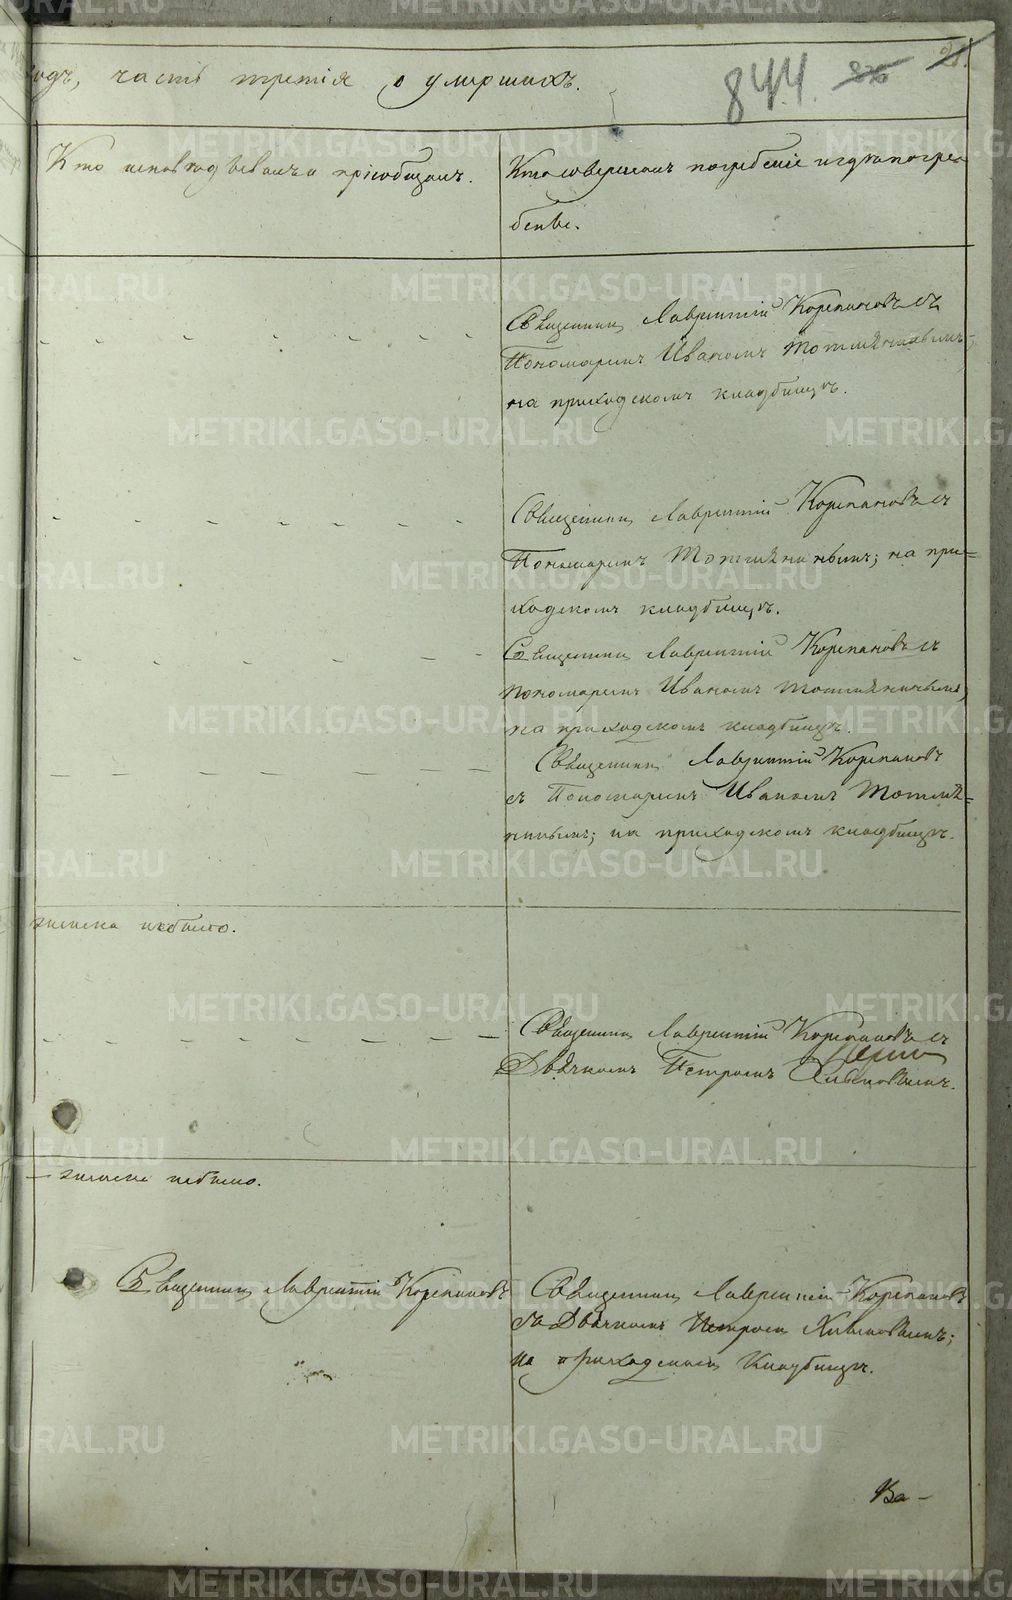 годъ, часть третія о умершихъ.
844.
Кто исповѣдывалъ и пріобщалъ.
Кто совершалъ погребеніе и гдѣ погре-
бены.
Священникъ Лаврентій Корепановъ съ
Пономаремъ Иваномъ Тотмянинымъ;
на приходскомъ кладбищѣ.
Священникъ Лаврентій Корепановъ съ
Пономаремъ Тотмянинымъ; на при=
ходскомъ кладбищѣ.
Священникъ Лаврентій Корепановъ съ
пономаремъ Иваномъ Тотмянинымъ,
на приходскомъ кладбищѣ.
Священникъ Лаврентій Корепановъ
съ Пономаремъ Иваномъ Тотмя=
нинымъ; на приходскомъ кладбищѣ.
небыло.
Священникъ Лаврентій Корепановъ съ
Дьячкомъ Петромъ
небыло.
Священникъ Лаврентій Корепановъ
Священникъ Лаврентій Корепановъ
съ Дьячкомъ Петромъ
на приходскомъ Кладбищѣ.
Ва-
METRIKI.GASO-URAL.RU